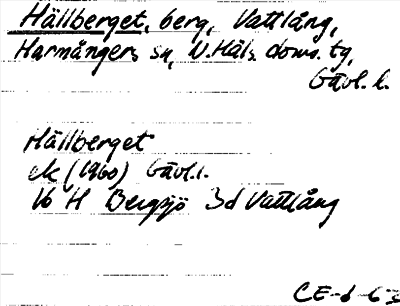 Hällberget, berg, Vattlång,
Harmångers sn, N. Häls. doms. tg,
Gävl. l.
Hällberget
ek (1960) Gävl. l.
16 H Bergsjö 3d Vattlång
CE-6-63